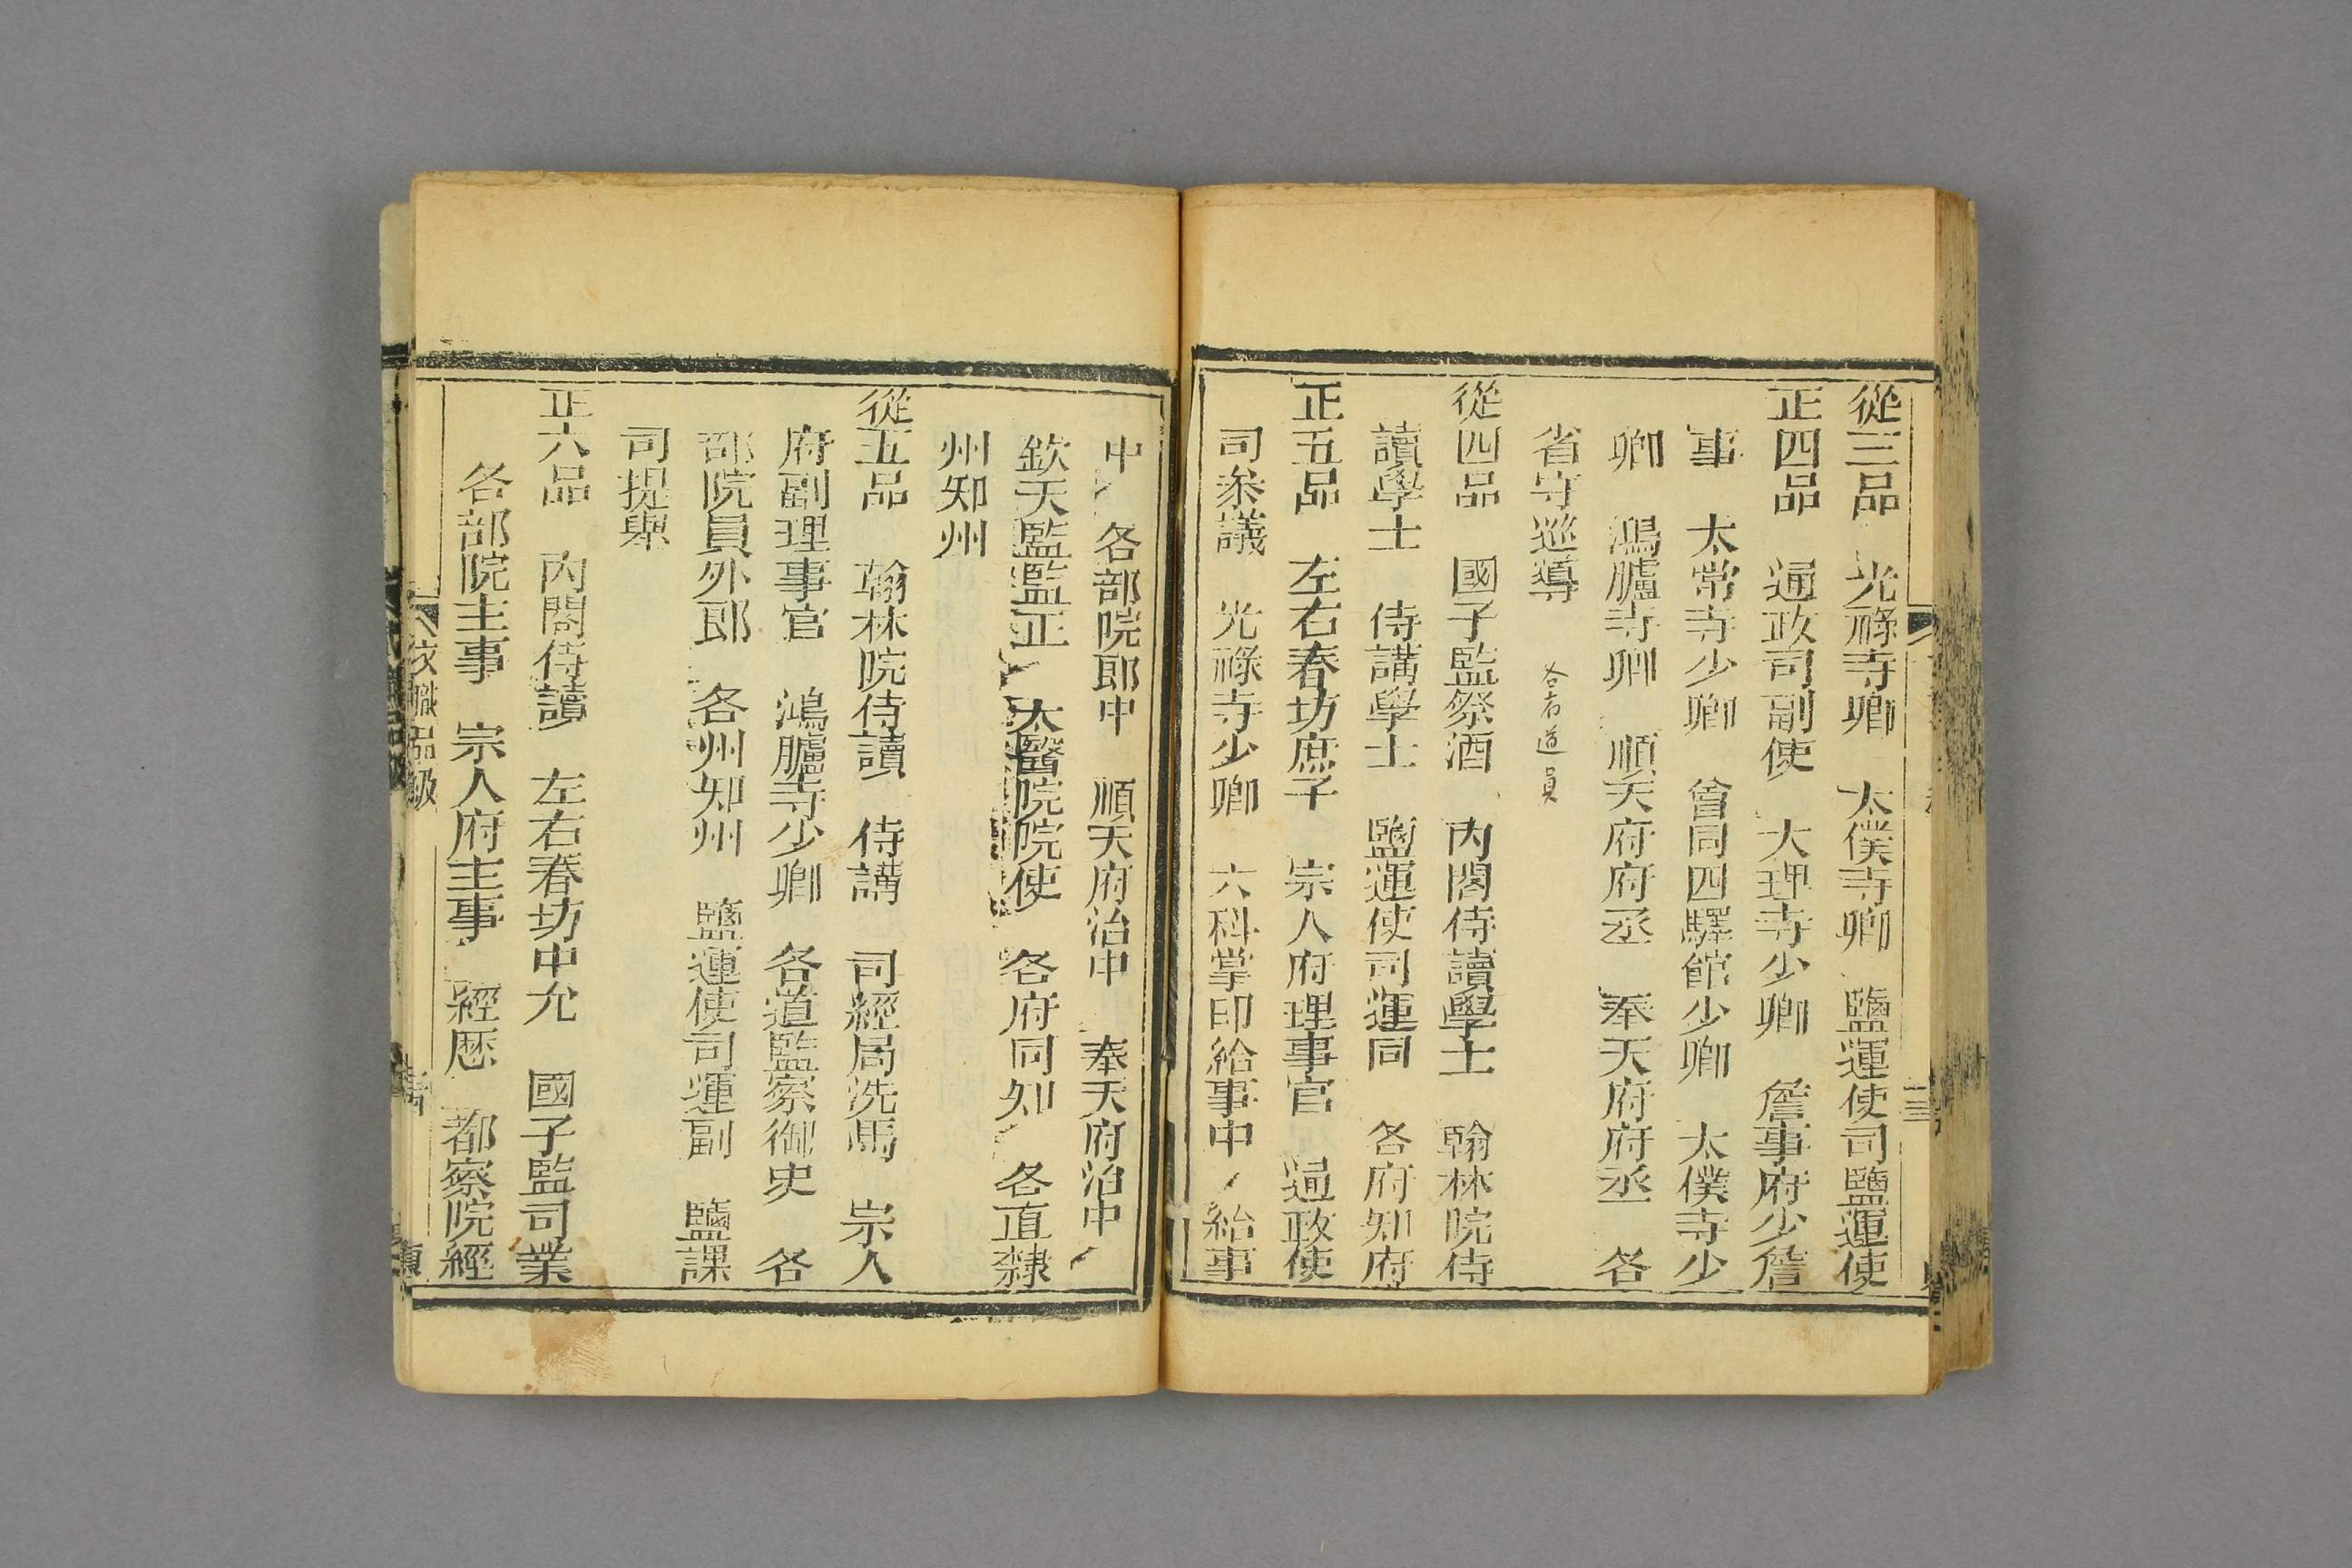 從三品　光祿寺卿　太僕寺卿　鹽運使司鹽運使
正四品　通政司副使　大理寺少卿　詹事府少詹
事　太常寺少卿　會同四驛館少卿　太僕寺少
卿　鴻臚寺卿　順天府府丞　奉天府府丞　各
省守巡導　各省道員
從四品　國子監祭酒　內閣侍讀學士　翰林院侍
讀學士　侍講學士　鹽運使司運同　各府知府
正五品　左右春坊庶子　宗人府理事官　通政使
司叅議　光祿寺少卿　六科掌印給事中　給事
中　各部院郎中　順天府治中　奉天府治中
欽天監監正　太醫院院使　各府同知　各直隸
州知州
從五品　翰林院侍讀　侍講　司經局洗馬　宗人
府副理事官　鴻臚寺少卿　各道監察御史　各
部院員外郎　各州知州　鹽運使司運副　鹽課
司提舉
正六品　內閣侍讀　左右春坊中允　國子監司業
各部院主事　宗人府主事　經歷　都察院經
文職品級